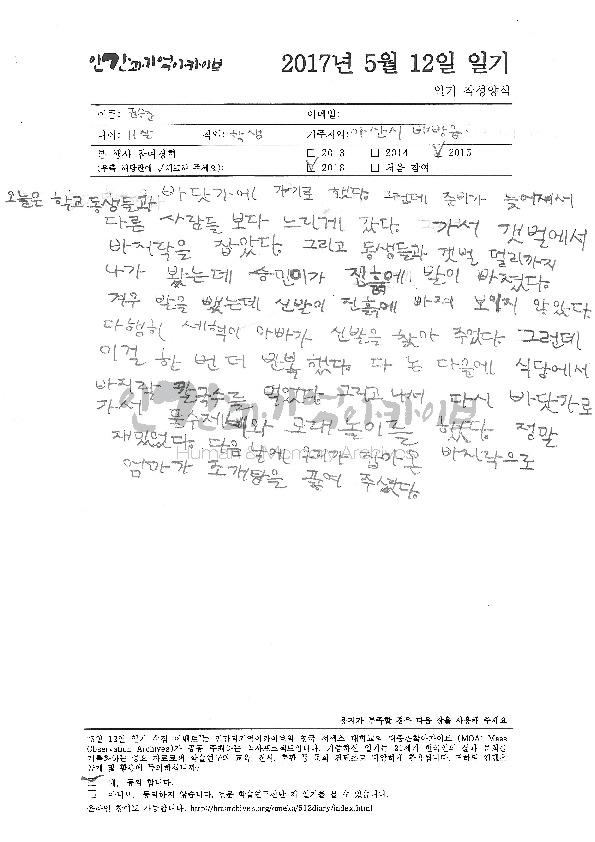 인간과기억아카이브 2017년 5월 12일 일기
일기 작성양식
이름: 이메일:
나이: 11살 직업: 학생 거주지역: 아산시 배방읍
본 행사 참여경험 □ 2013 □ 2014 ☑ 2015
(우측 해당란에 ✓ 표 해 주세요): ☑ 2016 □ 처음 참여
오늘은 학교 동생들과 바닷가에 가기로 했다. 그런데 준비가 늦어져서
다른 사람들 보다 느리게 갔다. 가서 갯벌에서
바지락을 잡았다. 그리고 동생들과 갯벌 멀리까지
나가 봤는데 승민이가 진흙에 발이 빠졌다.
겨우 발을 뺐는데 신발이 진흙에 빠져 보이지 않았다.
다행히 세혁이 아빠가 신발을 찾아 주었다. 그런데
이걸 한 번 더 반복했다. 다 논 다음에 식당에서
바지락 칼국수를 먹었다. 그리고 나서 다시 바닷가로
가서 물수제비와 모래놀이를 했다. 정말
재밌었다. 다음 날에 우리가 잡아온 바지락으로
엄마가 조개탕을 끓여 주셨다.
인간과기억아카이브
Human & Memory Archives
용지가 부족할 경우 다음 장을 사용해 주세요
"5월 12일 일기 수집 이벤트"는 인간과기억아카이브와 영국 서섹스 대학교의 대중관찰아카이브 (MOA: Mass
Observation Archives)가 공동 주최하는
☑ 네, 동의 합니다.
□ 아니오, 동의하지 않습니다.
온라인 참여도 가능합니다. http://hmarchives.org/omeka/512diary/index.html